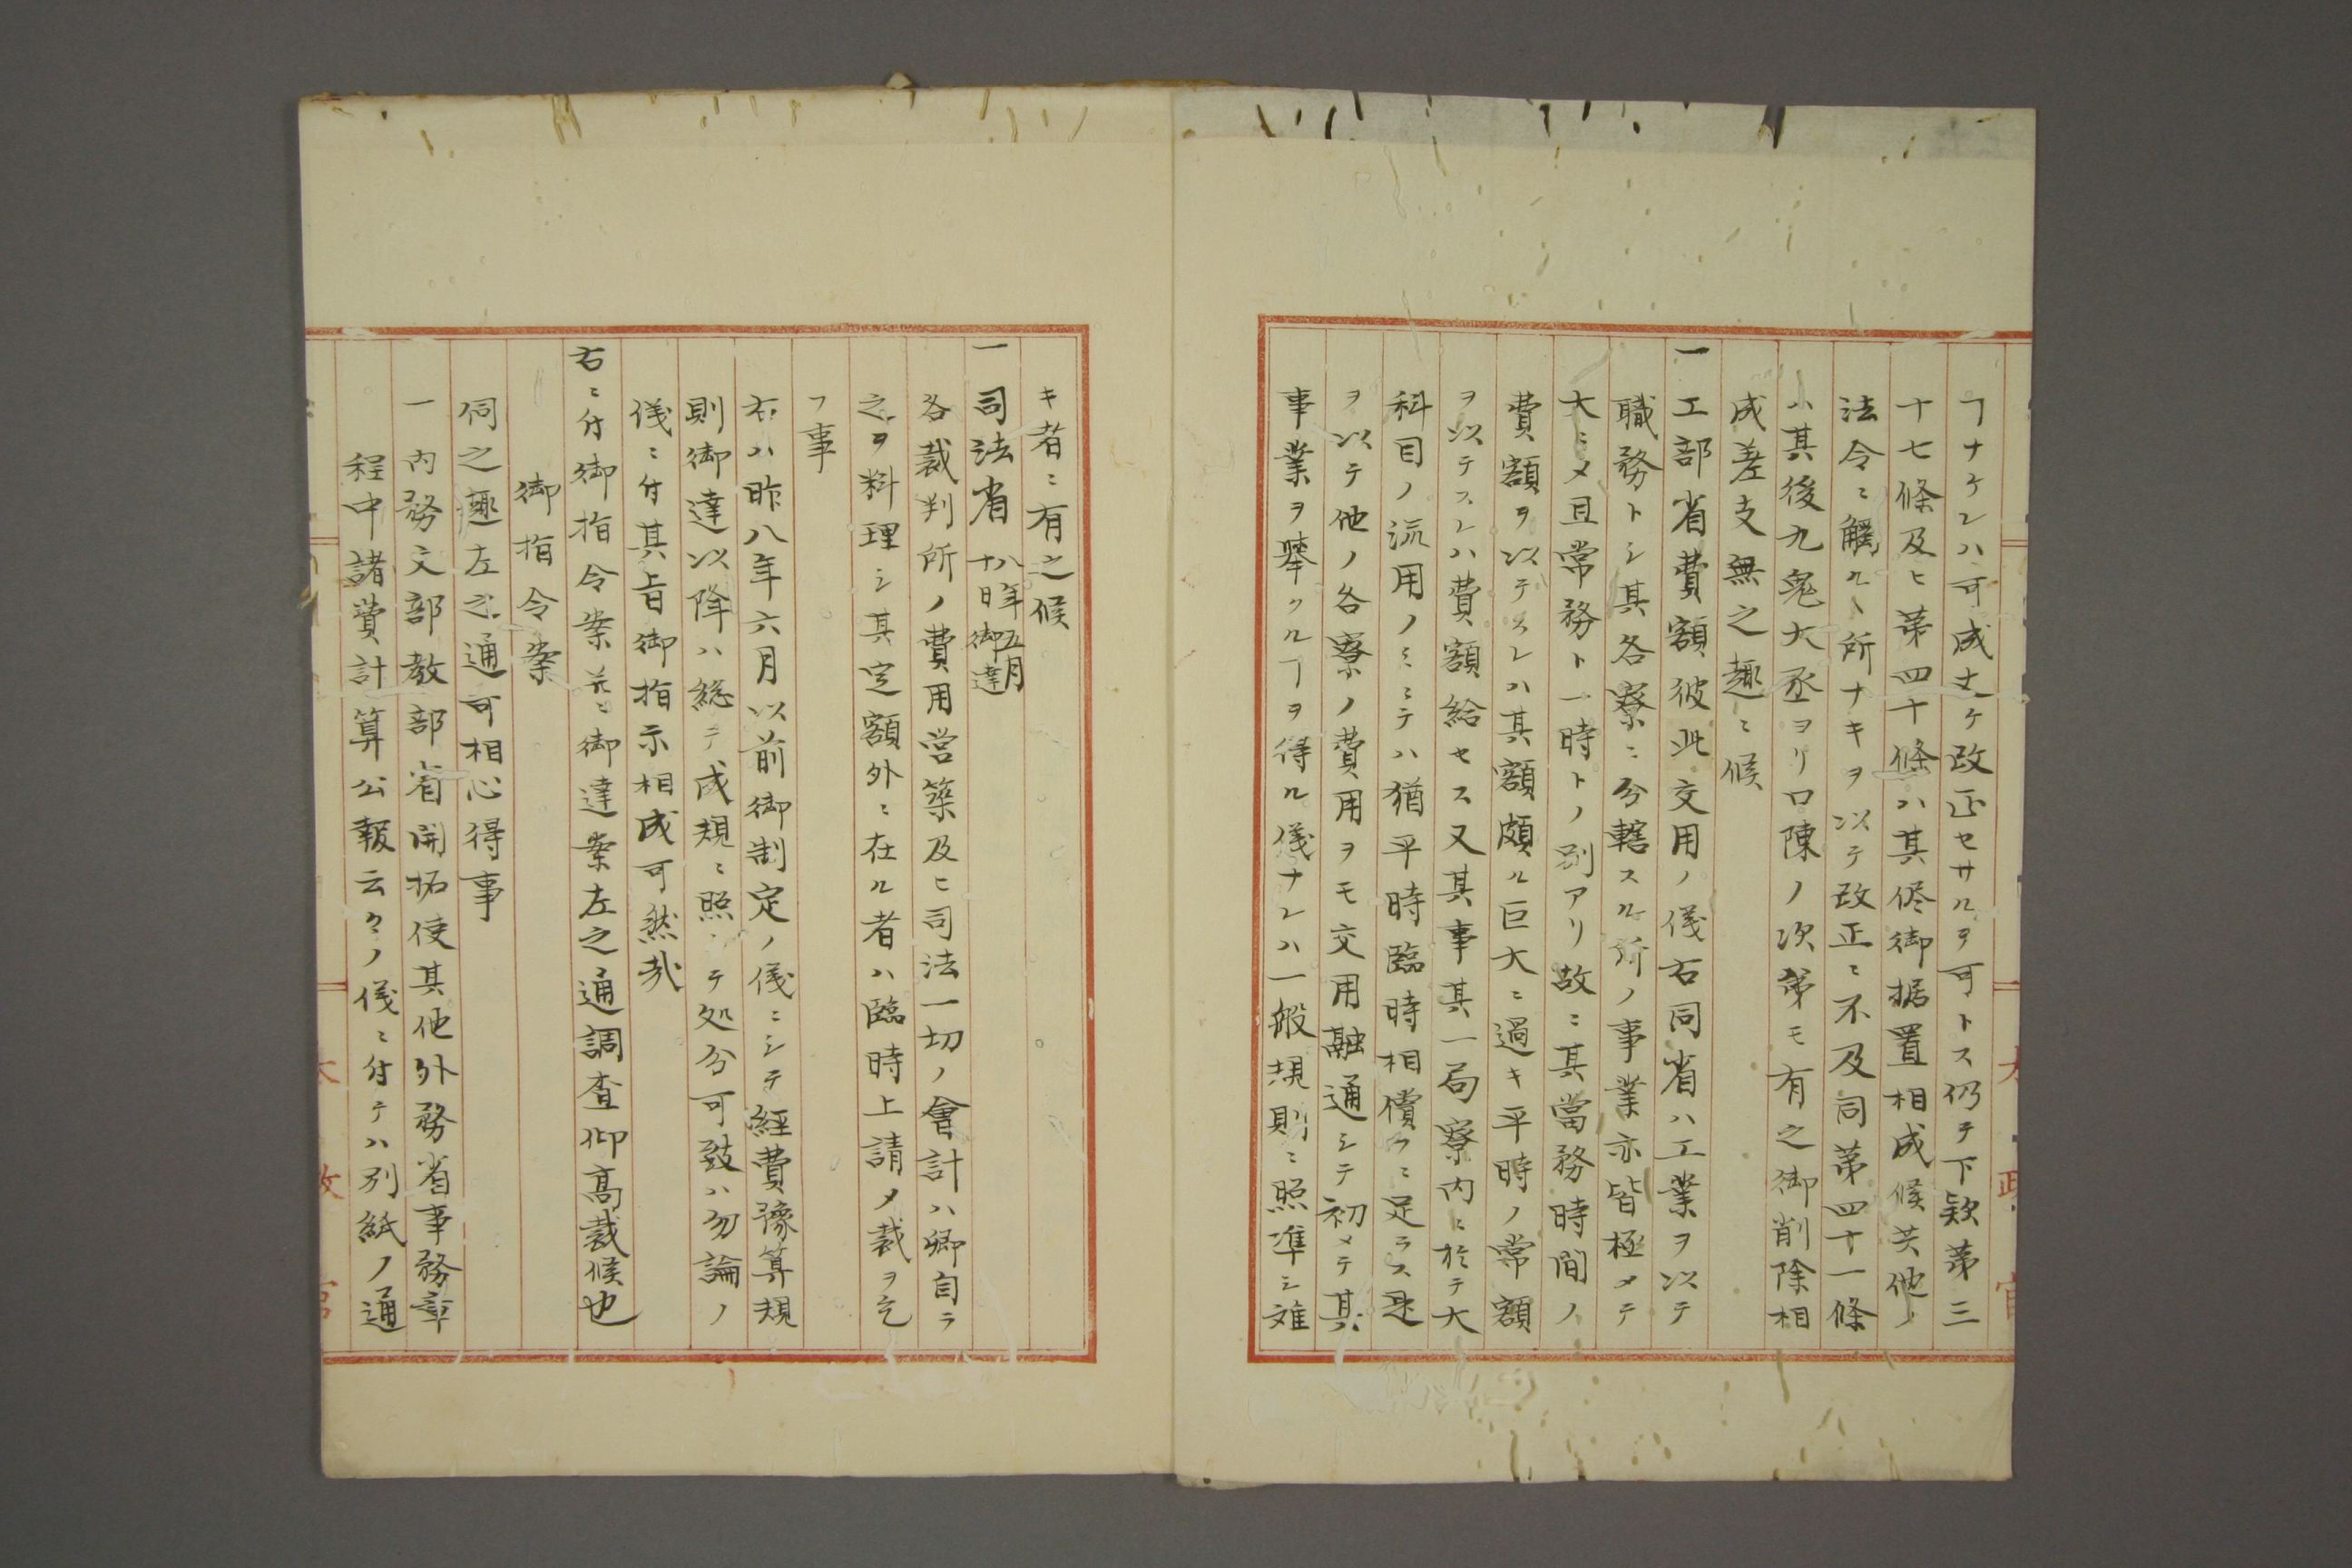 ヿナケレハ可成丈ケ改正セサルヲ可トス仍テ下欵第三
十七條及ヒ第四十條ハ其侭御据置相成候其他ノ
法令ニ觸ルヽ所ナキヲ以テ改正ニ不及同第四十一條
ハ其後九鬼大丞ヨリ口陳ノ次第モ有之御削除相
成差支無之趣ニ候
一工部省費額彼此交用ノ儀右同省ハ工業ヲ以テ
職務トシ其各寮ニ分轄スル所ノ事業亦皆極メテ
大ニメ且常務ト一時トノ別アリ故ニ其當務時間ノ
費額ヲ以テスレハ其額頗ル巨大ニ過キ平時ノ常額
ヲ以テスレハ費額給セス又其事其一局寮内ニ於テ大
科目ノ流用ノミニテハ猶平時臨時相償フニ足ラス是
ヲ以テ他ノ各寮ノ費用ヲモ交用融通シテ初メテ其
事業ヲ擧クルヿヲ得ル儀ナレハ一般規則ニ照準シ難
キ者ニ有之候
一司法省 八年五月十八日御達
各裁判所ノ費用営築及ヒ司法一切ノ會計ハ卿自ラ
之ヲ料理シ其定額外ニ在ル者ハ臨時上請メ裁ヲ乞
フ事
右ハ昨八年六月以前御制定ノ儀ニシテ經費豫算規
則御達以降ハ総テ成規ニ照シテ処分可致ハ勿論ノ
儀ニ付其旨御指示相成可然哉
右ニ付御指令案并ニ御達案左之通調査仰高裁候也
御指令案
伺之趣左之通可相心得事
一内務文部教部省開拓使其他外務省事務章
程中諸費計算公報云々ノ儀ニ付テハ別紙ノ通
太政官